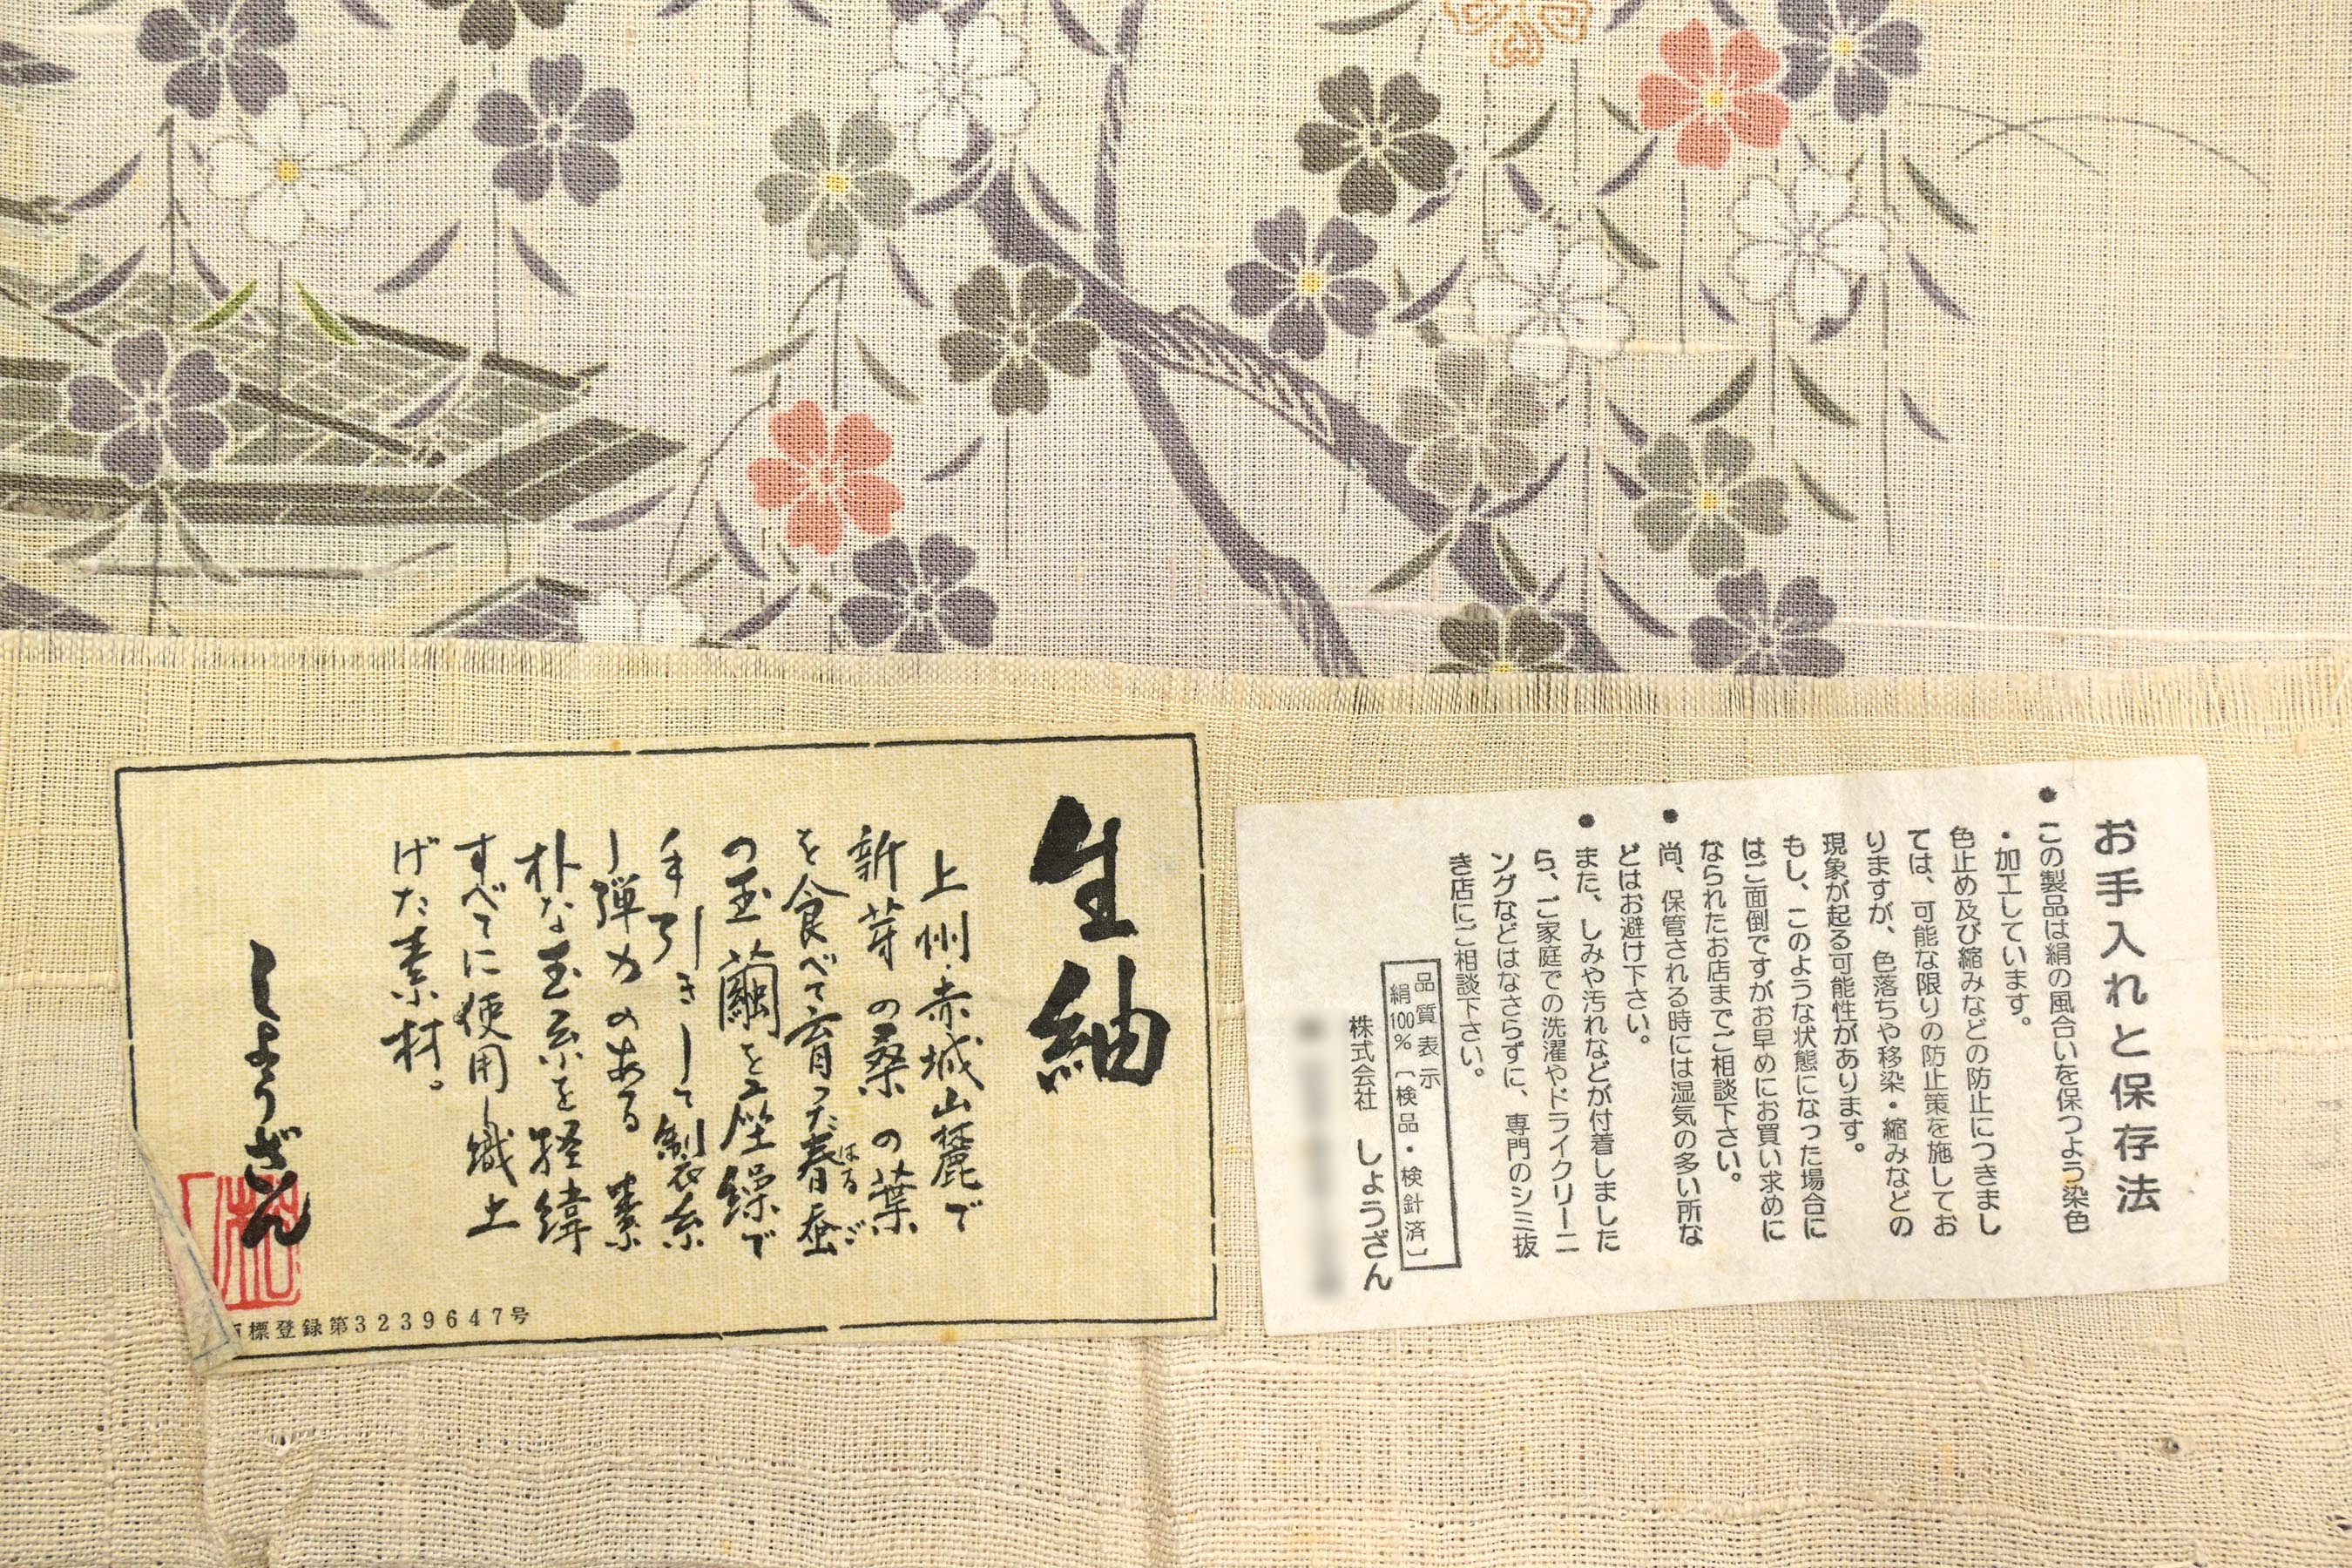 生紬
上州・赤城山麓で
新芽の桑の葉
を食べて育った春蚕
はるご
の玉繭を座繰で
手引きして製糸
し弾力のある素
朴な玉糸を経緯
すべてに使用し織上
げた素材。
しょうざん
標登録第3239647号
お手入れと保存法
●この製品は絹の風合いを保つよう染色
・加工しています。
色止め及び縮みなどの防止につきまし
ては、可能な限りの防止策を施してお
りますが、色落ちや移染・縮みなどの
現象が起る可能性があります。
もし、このような状態になった場合に
はご面倒ですがお早めにお買い求めに
なられたお店までご相談下さい。
●尚、保管される時には湿気の多い所な
どはお避け下さい。
●また、しみや汚れなどが付着しました
ら、ご家庭での洗濯やドライクリーニ
ングなどはなさらずに、専門のシミ抜
き店にご相談下さい。
品質表示
絹100％〔検品・検針済〕
株式会社 しょうざん